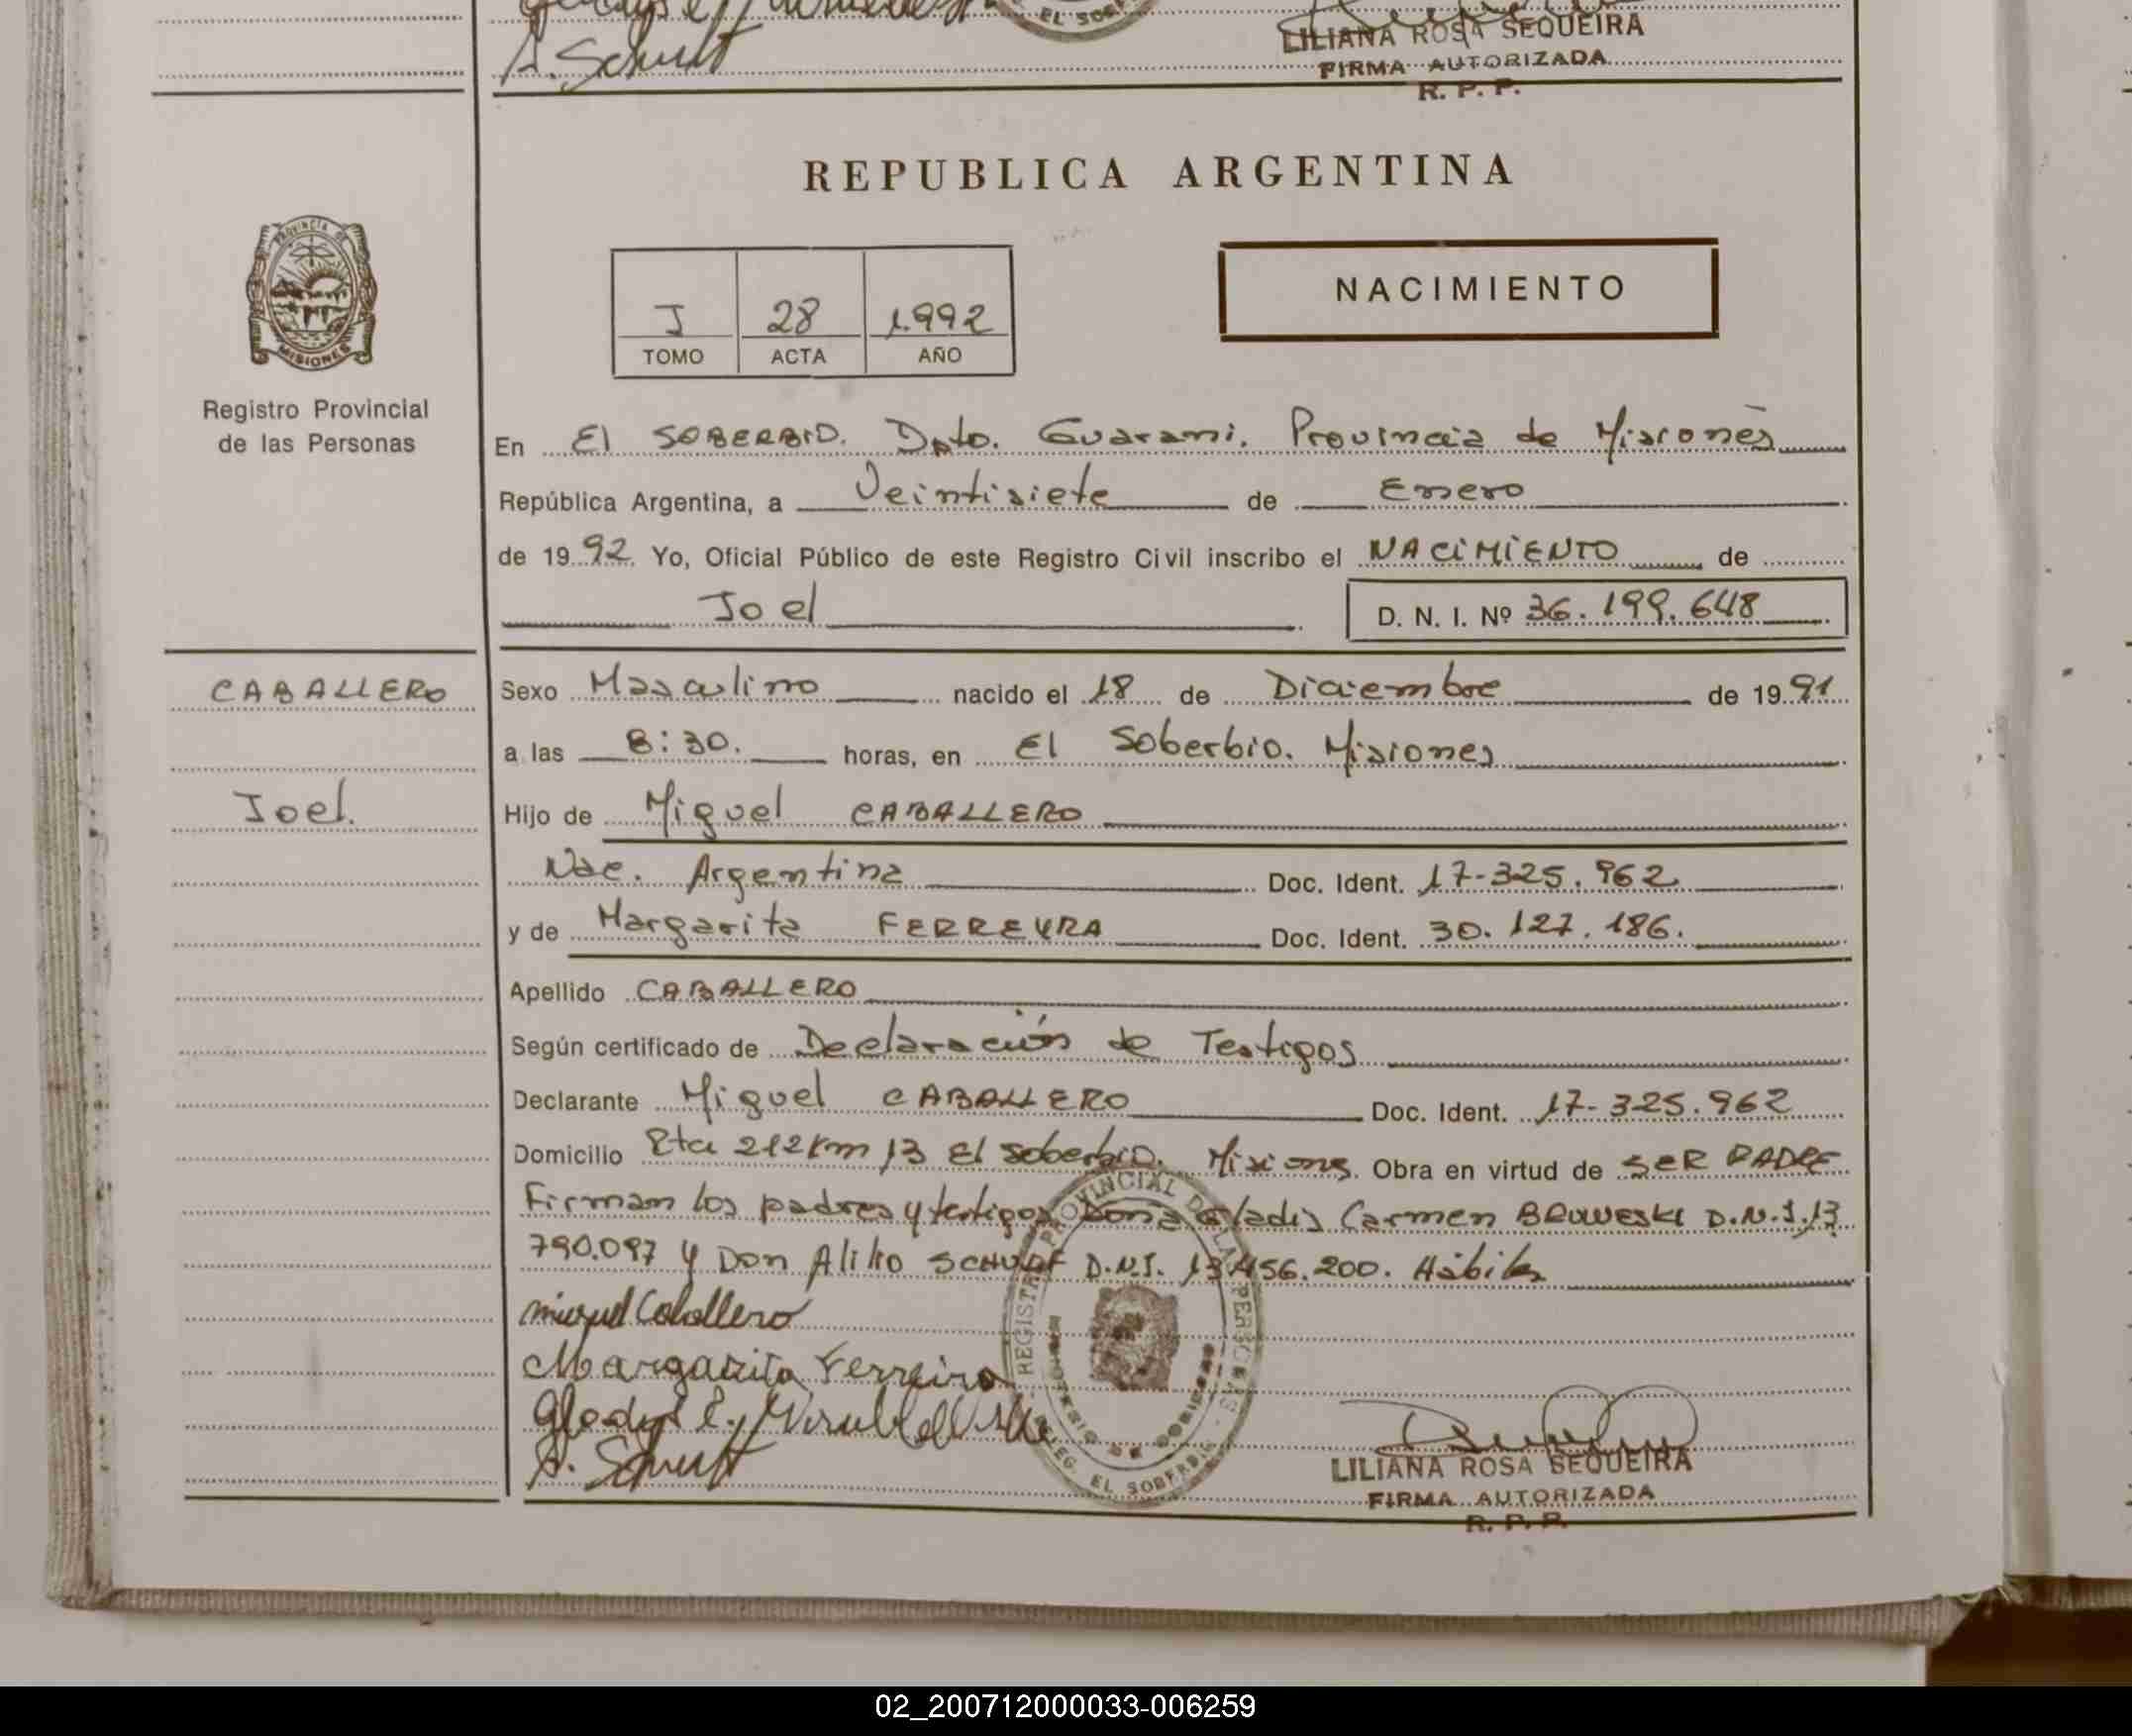 EL SOBE
A. Schuft
LILIANA ROSA SEQUEIRA
FIRMA AUTORIZADA
R. P. P.
REPUBLICA ARGENTINA
PROVINCIA DE
MISIONES
Registro Provincial
de las Personas
I 28 1.992
TOMO ACTA AÑO
NACIMIENTO
En El SOBERBIO. Dpto. Guarami. Provincia de Misiones
República Argentina, a Veintisiete de Enero
de 1992 Yo, Oficial Público de este Registro Civil inscribo el NACIMIENTO de
Joel D. N. I. Nº 36.199.648
CABALLERO
Joel.
Sexo Masculino nacido el 18 de Diciembre de 1991
a las 8:30. horas, en El Soberbio. Misiones
Hijo de Miguel CABALLERO
Nac. Argentina Doc. Ident. 17-325.962
y de Margarita FERREYRA Doc. Ident. 30.127.186.
Apellido CABALLERO
Según certificado de Declaración de Testigos
Declarante Miguel CABALLERO Doc. Ident. 17-325.962
Domicilio Rta 212 Km 13 El Soberbio. Misiones. Obra en virtud de SER PADRE
Firman los padres y testigos Doña Gladis Carmen D.N.I. 13
790.097 y Don D.N.I. 13.456.200. Hábiles
Miguel Caballero
Margarita Ferreira
A. Schuft
REGISTRO PROVINCIAL DE LAS PERSONAS
MINISTERIO DE GOBIERNO
DELEG. EL SOBERBIO
LILIANA ROSA SEQUEIRA
FIRMA AUTORIZADA
R. P. P.
02_200712000033-006259